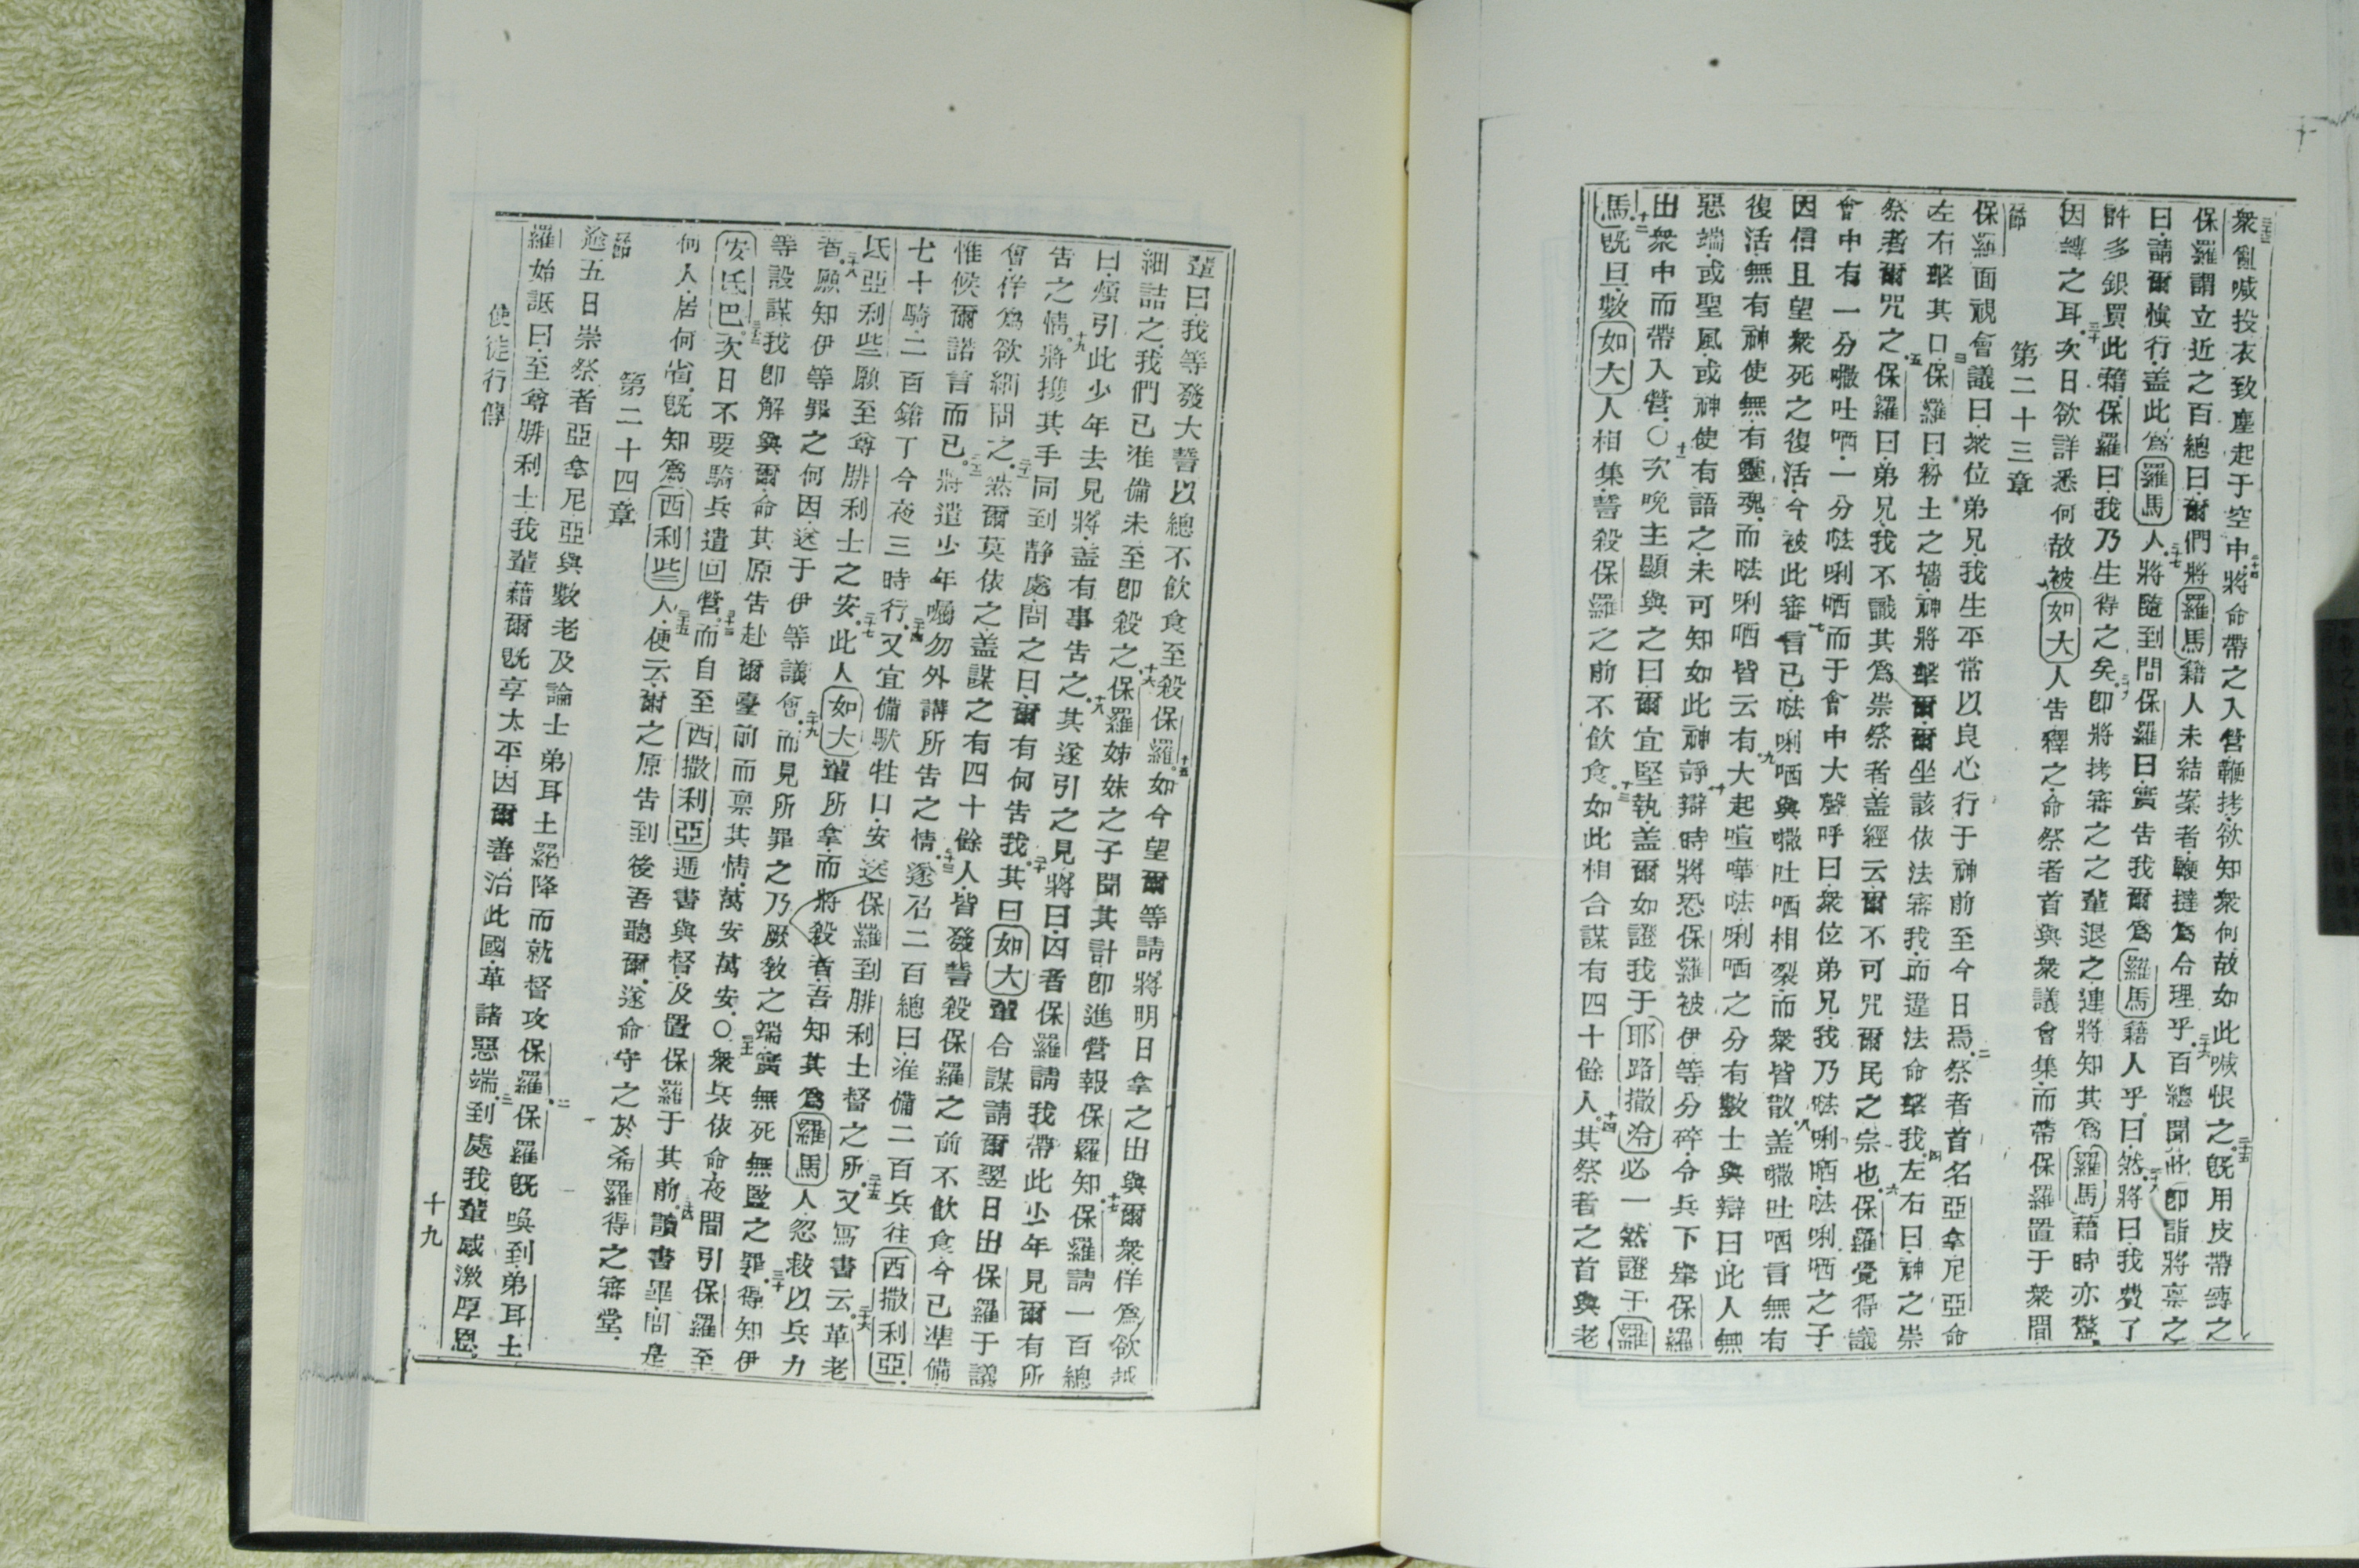 衆亂喊投衣致塵起于空中二十四將命帶之入營鞭拷欲知衆何故如此喊恨之二十五旣用皮帶縛之
保羅謂立近之百總曰爾們將羅馬籍人未結案者鞭撻爲合理乎二十六百總聞此卽詣將禀之
曰請爾愼行盖此爲羅馬人二十七將隨到問保羅曰實告我爾爲羅馬籍人乎曰然二十八將曰我費了
許多銀買此籍保羅曰我乃生得之矣二十九卽將拷審之之輩退之連將知其爲羅馬藉時亦驚
因縛之耳三十次日欲詳悉何故被如大人告釋之命祭者首與衆議會集而帶保羅置于衆間
第二十三章
保羅面視會議曰衆位弟兄我生平常以良心行于神前至今日焉二祭者首名亞拿尼亞命
左右擊其口三保羅曰粉土之墻神將擊爾爾坐該依法審我而違法命擊我四左右曰神之崇
祭者爾咒之五保羅曰弟兄我不識其爲崇祭者盖經云爾不可咒爾民之宗也六保羅覺得議
會中有一分𠼻吐哂一分𠵽唎哂而于會中大聲呼曰衆位弟兄我乃𠵽唎哂𠵽唎哂之子
因信且望衆死之復活今被此審七言已𠵽唎哂與𠼻吐哂相裂而衆皆散八盖𠼻吐哂言無有
復活無有神使無有靈魂而𠵽唎哂皆云有九大起喧嘩𠵽唎哂之分有數士與辯曰此人無
惡端或聖風或神使有語之未可知如此神諍十辯時將恐保羅被伊等分碎令兵下舉保羅
出衆中而帶入營〇十一次晚主顯與之曰爾宜堅執盖爾如證我于耶路撒冷必一然證于羅
馬十二旣旦數如大人相集誓殺保羅之前不飲食十三如此相合謀有四十餘人十四其祭者之首與老
輩曰我等發大誓以總不飲食至殺保羅十五如今望爾等請將明日拿之出與爾衆佯爲欲越
細詰之我們已准備未至卽殺之十六保羅姊妹之子聞其計卽進營報保羅知十七保羅請一百總
曰煩引此少年去見將盖有事告之十八其遂引之見將曰囚者保羅請我帶此少年見爾有所
告之情十九將攜其手同到靜處問之曰爾有何告我二十其曰如大輩合謀請爾翌日出保羅于議
會佯爲欲細問之二十一然爾莫依之盖謀之有四十餘人皆發誓殺保羅之前不飲食今已準備
惟候爾諾言而已二十二將遣少年囑勿外講所告之情二十三遂召二百總曰准備二百兵往西撒利亞
七十騎二百鎗丁今夜三時行二十四又宜備馱牲口安送保羅到腓利士督之所二十五又寫書云二十六革老
氐亞利些願至尊腓利士之安二十七此人如大輩所拿而將殺者吾知其爲羅馬人忽救以兵力
者二十八願知伊等罪之何因送于伊等議會二十九而見所罪之乃厥敎之端實無死無監之罪三十得知伊
等設謀我卽解與爾命其原告赴爾臺前而禀其情萬安萬安〇三十一衆兵依命夜間引保羅至
安氐巴三十二次日不要騎兵遣回營三十三而自至西撒利亞遞書與督及置保羅于其前三十四讀書畢問是
何人居何省旣知爲西利些人三十五便云爾之原告到後吾聽爾遂命守之於希羅得之審堂
第二十四章
逾五日崇祭者亞拿尼亞與數老及論士弟耳土羅降而就督攻保羅二保羅旣喚到弟耳土
羅始詆曰至尊腓利士我輩藉爾旣享太平因爾善治此國革諸惡端三到處我輩感激厚恩
使徒行傳
十九